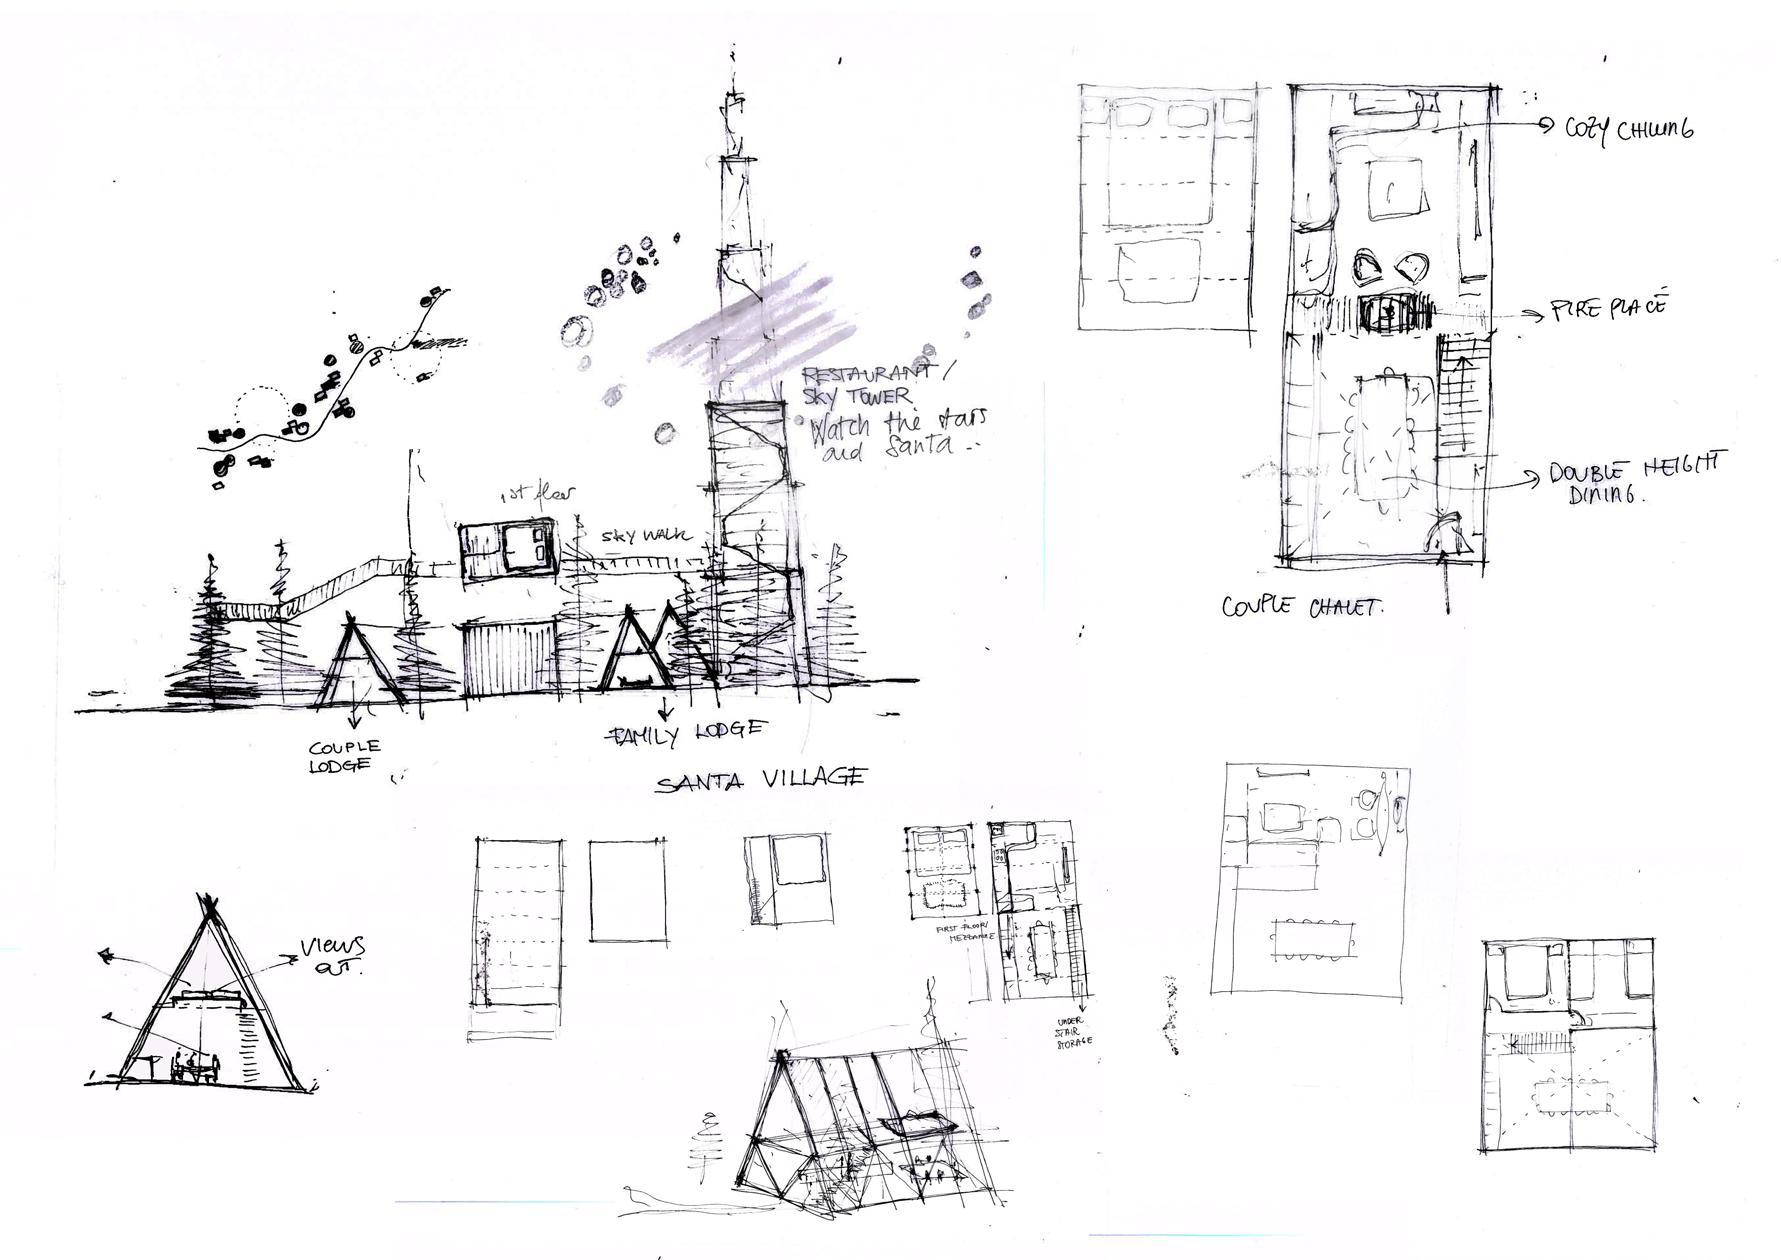 COZY CHILLING
FIRE PLACE
DOUBLE HEIGHT
DINING.
COUPLE CHALET.
RESTAURANT/
SKY TOWER
Watch the stars
and Santa...
1st floor
SKY WALK
COUPLE
LODGE
FAMILY LODGE
SANTA VILLAGE
VIEWS
OUT.
FIRST FLOOR/
MEZZANINE
UNDER
STAIR
STORAGE